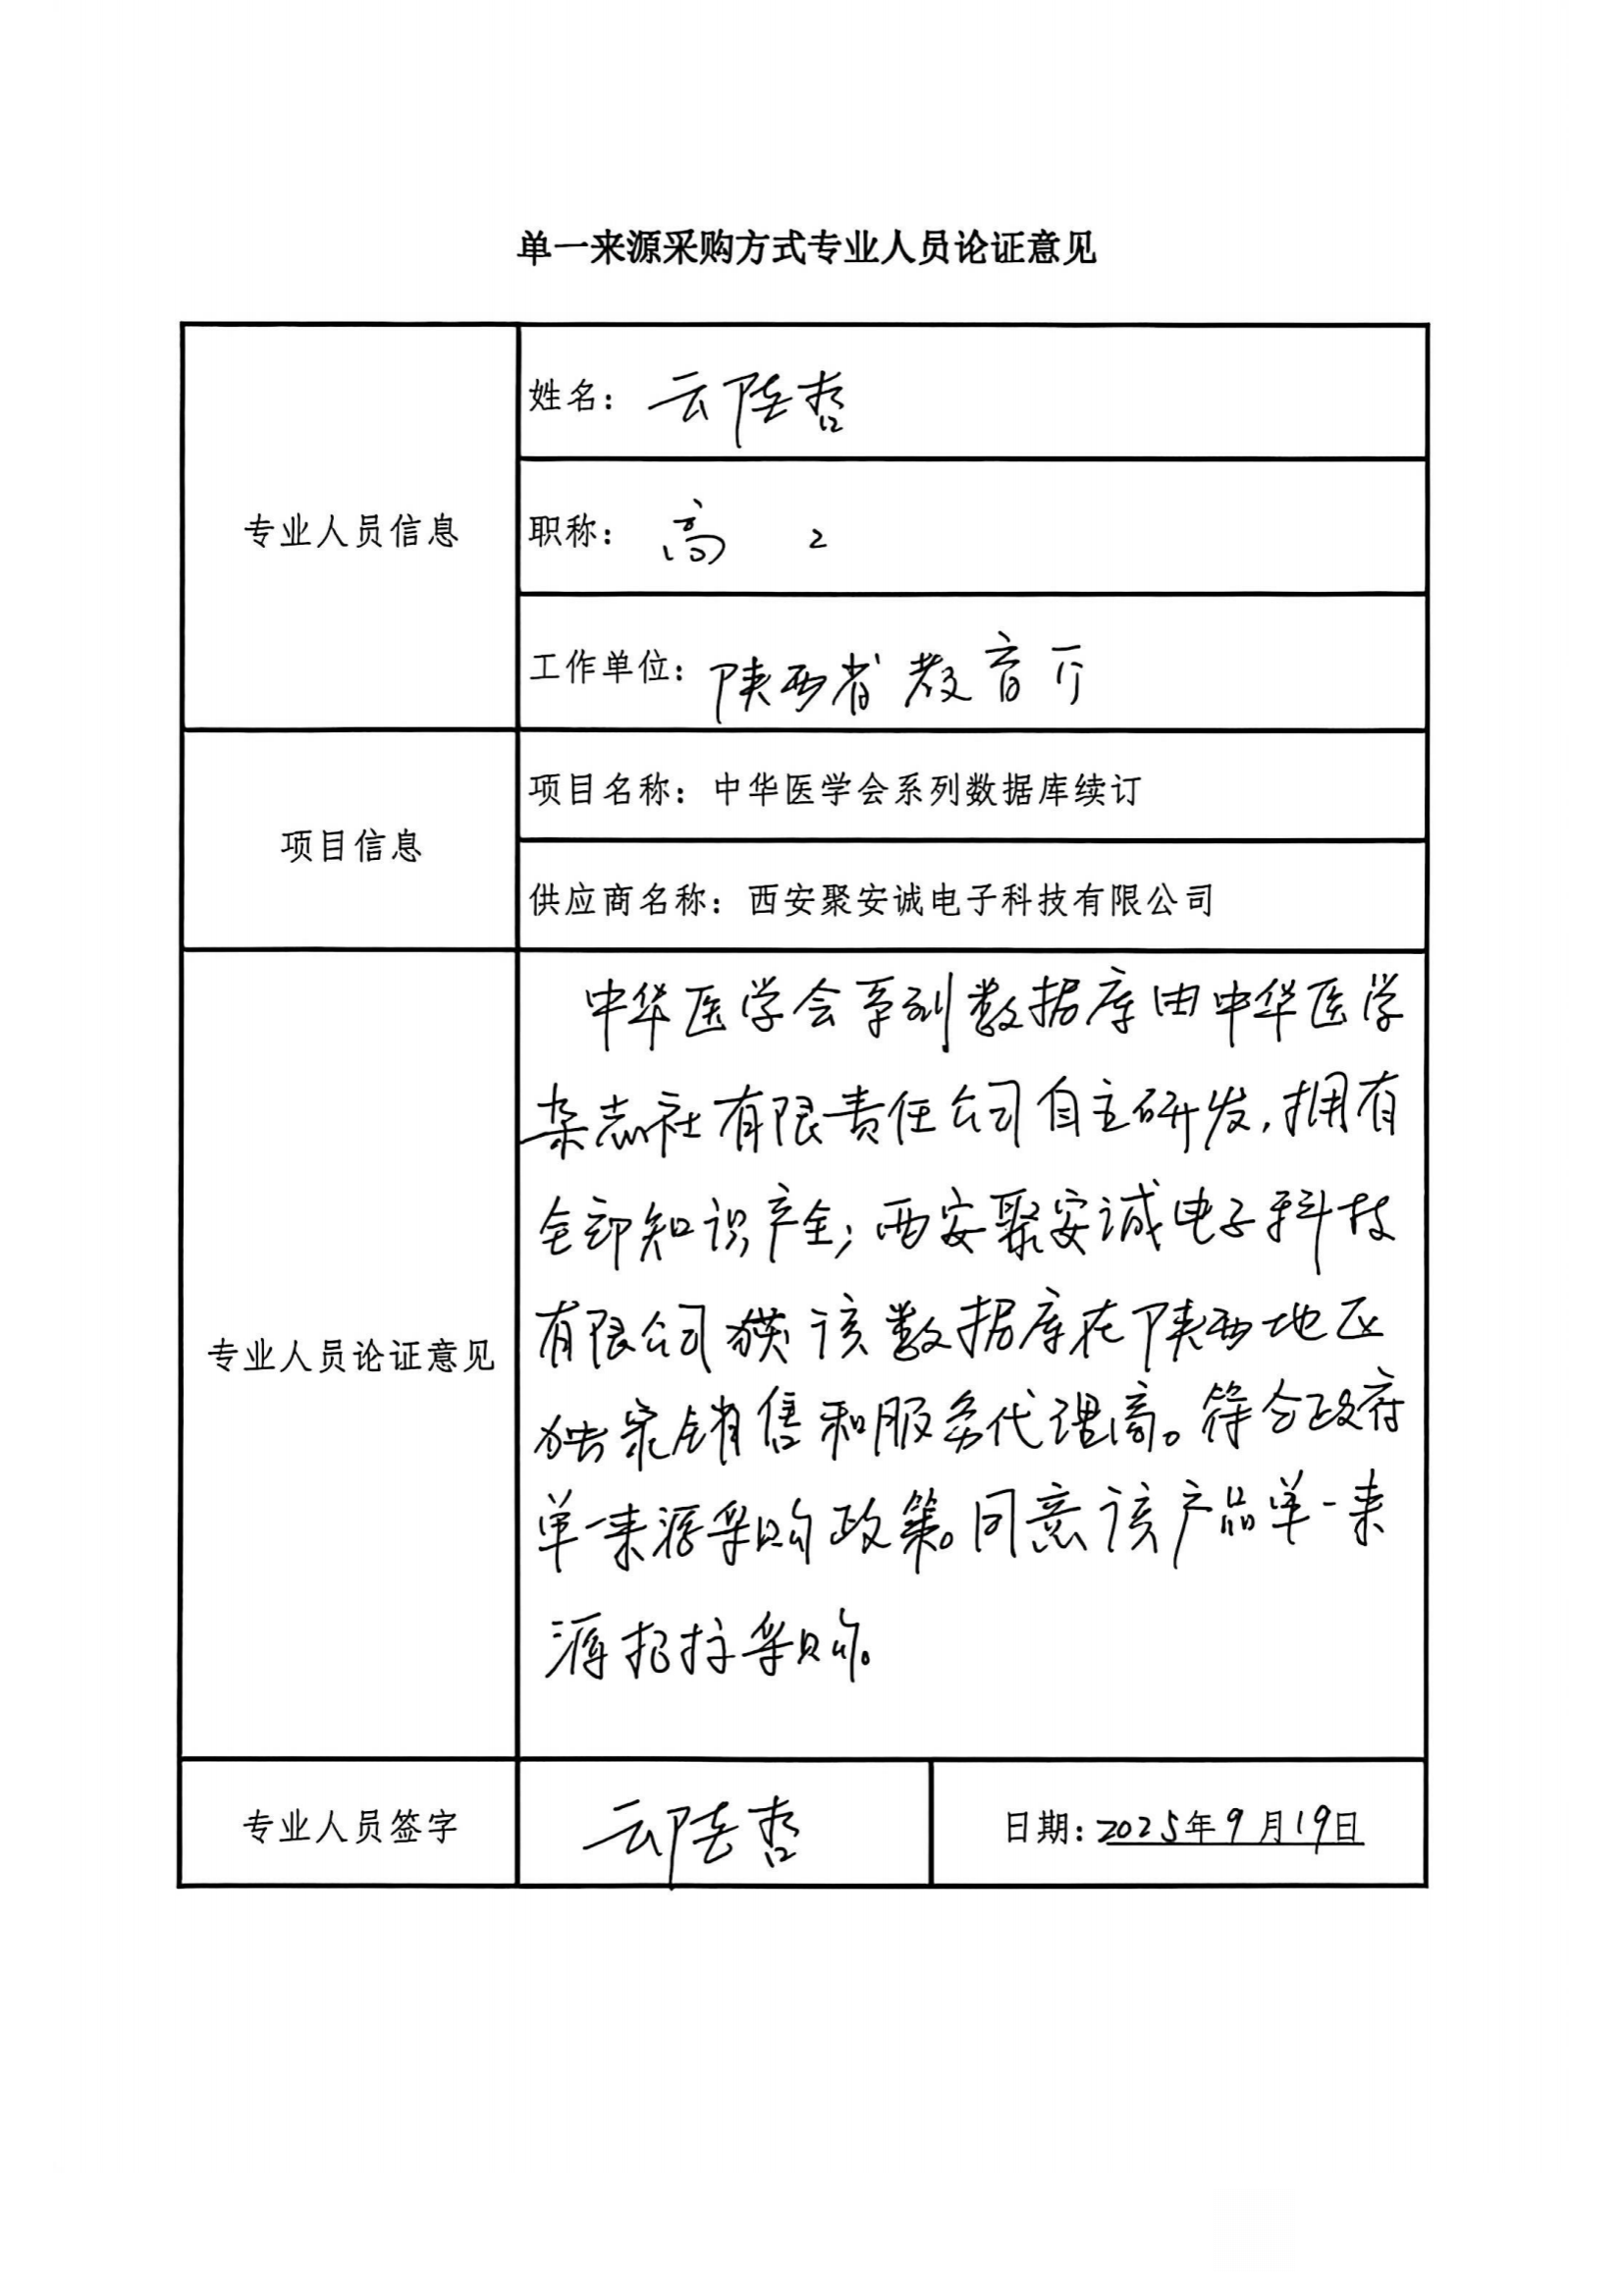 单一来源采购方式专业人员论证意见
专业人员信息
姓名：云陆哲
职称：高工
工作单位：陕西省教育厅
项目信息
项目名称：中华医学会系列数据库续订
供应商名称：西安聚安诚电子科技有限公司
专业人员论证意见
中华医学会系列数据库由中华医学
杂志社有限责任公司自主研发，拥有
全部知识产全；西安聚安诚电子科技
有限公司获该数据库在陕西地区
独家销售和服务代理商。符合政府
单一来源采购政策。同意该产品单一来
源招标采购。
专业人员签字
云陆哲
日期：2025年9月19日